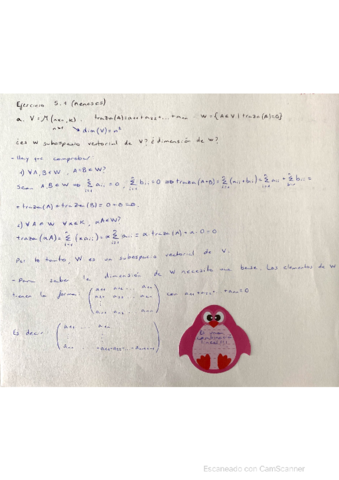 Ejercicio 5.1 (menos c)
a. V = M(n×n, K). traza(A) = a₁₁+a₂₂+...+aₙₙ. W = {A∈V | traza(A)=0}
dim(V) = n²
¿es W subespacio vectorial de V? ¿dimensión de W?
- Hay que comprobar
1) ∀A,B∈W. A+B∈W?
Sean A,B∈W ⇒ Σ aᵢᵢ = 0, Σ bᵢᵢ = 0 ⇒ traza(A+B) = Σ (aᵢᵢ+bᵢᵢ) = Σ aᵢᵢ + Σ bᵢᵢ =
= traza(A) + traza(B) = 0+0 = 0.
2) ∀A∈W ∀α∈K, αA∈W?
traza(αA) = Σ (αaᵢᵢ) = α Σ aᵢᵢ = α traza(A) = α·0 = 0.
Por lo tanto, W es un subespacio vectorial de V.
- Para saber la dimensión de W necesito una base. Los elementos de W
tienen la forma: con a₁₁+a₂₂+...+aₙₙ = 0
Es decir:
Escaneado con CamScanner